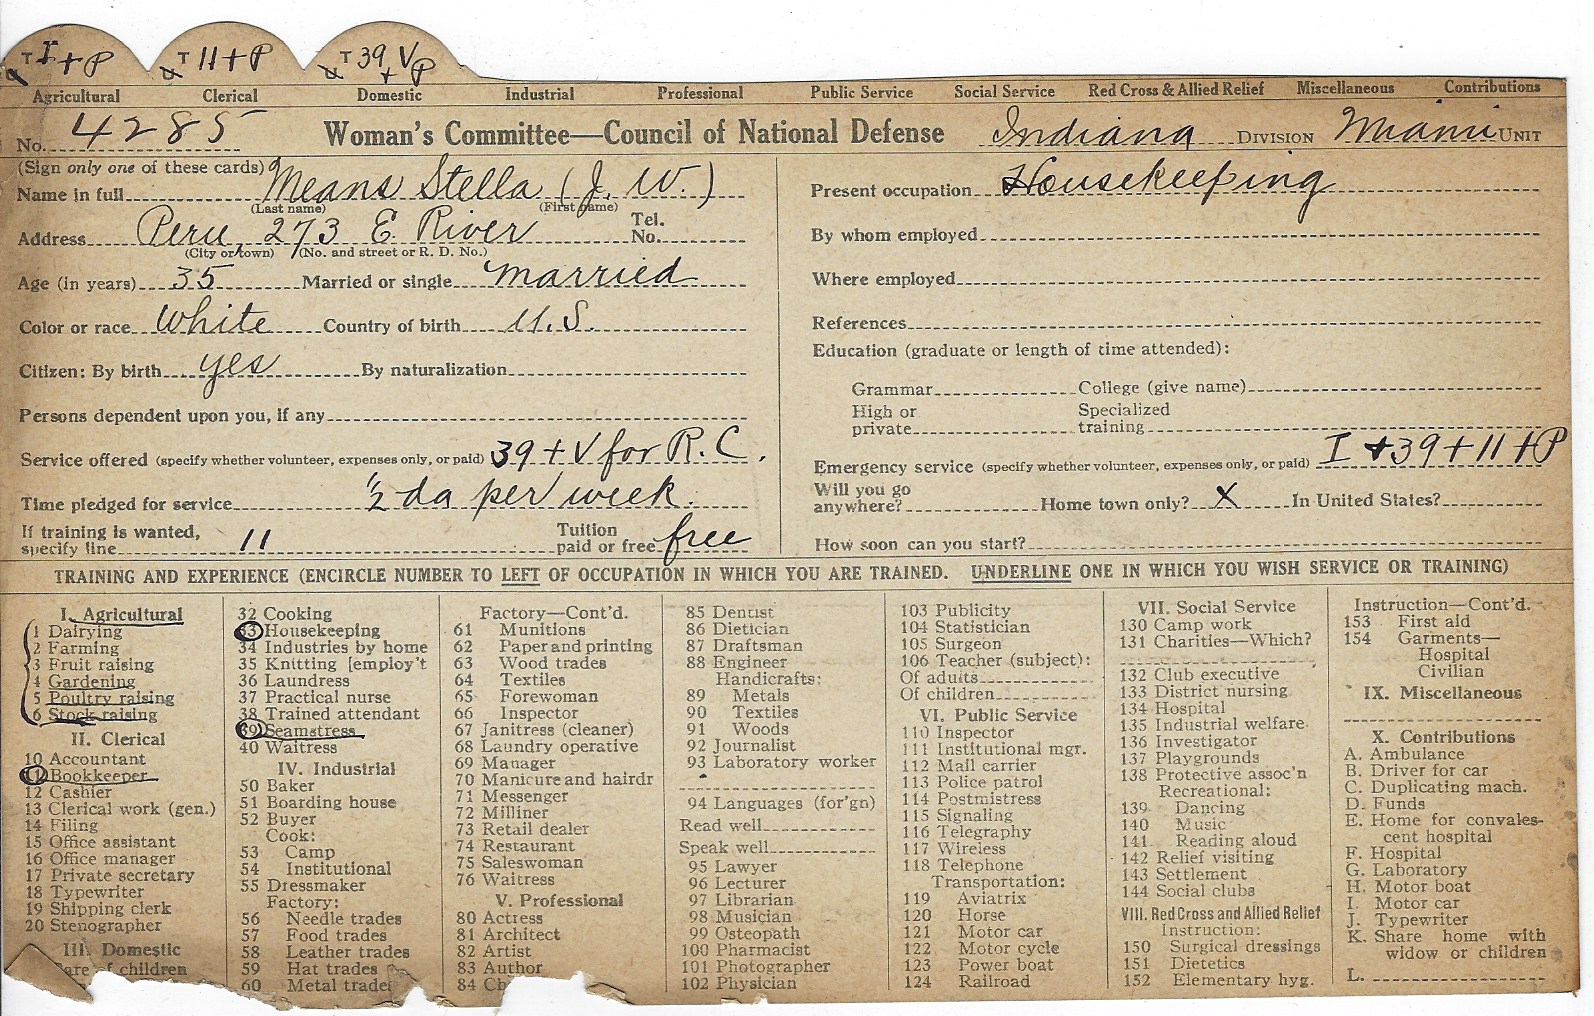 T I + P T 11 + P T 39 + V P
Agricultural Clerical Domestic Industrial Professional Public Service Social Service Red Cross & Allied Relief Miscellaneous Contributions
No. 4285 Woman's Committee—Council of National Defense Indiana DIVISION Miami UNIT
(Sign only one of these cards)
Name in full Means Stella (J. W.)
(Last name) (First name)
Address Peru, 273 E. River Tel. No.
(City or town) (No. and street or R. D. No.)
Age (in years) 35 Married or single married
Color or race White Country of birth U. S.
Citizen: By birth yes By naturalization
Persons dependent upon you, if any
Service offered (specify whether volunteer, expenses only, or paid) 39 + V for R. C.
Time pledged for service ½ da per week.
If training is wanted, specify line 11 Tuition paid or free free
Present occupation Housekeeping
By whom employed
Where employed
References
Education (graduate or length of time attended):
Grammar College (give name)
High or private Specialized training
Emergency service (specify whether volunteer, expenses only, or paid) I + 39 + 11 + P
Will you go anywhere? Home town only? X In United States?
How soon can you start?
TRAINING AND EXPERIENCE (ENCIRCLE NUMBER TO LEFT OF OCCUPATION IN WHICH YOU ARE TRAINED. UNDERLINE ONE IN WHICH YOU WISH SERVICE OR TRAINING)
I. Agricultural
1 Dairying
2 Farming
3 Fruit raising
4 Gardening
5 Poultry raising
6 Stock raising
II. Clerical
10 Accountant
11 Bookkeeper
12 Cashier
13 Clerical work (gen.)
14 Filing
15 Office assistant
16 Office manager
17 Private secretary
18 Typewriter
19 Shipping clerk
20 Stenographer
III. Domestic
Care of children
32 Cooking
33 Housekeeping
34 Industries by home
35 Knitting [employ't
36 Laundress
37 Practical nurse
38 Trained attendant
39 Seamstress
40 Waitress
IV. Industrial
50 Baker
51 Boarding house
52 Buyer
Cook:
53 Camp
54 Institutional
55 Dressmaker
Factory:
56 Needle trades
57 Food trades
58 Leather trades
59 Hat trades
60 Metal trades
Factory—Cont'd.
61 Munitions
62 Paper and printing
63 Wood trades
64 Textiles
65 Forewoman
66 Inspector
67 Janitress (cleaner)
68 Laundry operative
69 Manager
70 Manicure and hairdr
71 Messenger
72 Milliner
73 Retail dealer
74 Restaurant
75 Saleswoman
76 Waitress
V. Professional
80 Actress
81 Architect
82 Artist
83 Author
84 Ch
85 Dentist
86 Dietician
87 Draftsman
88 Engineer
Handicrafts:
89 Metals
90 Textiles
91 Woods
92 Journalist
93 Laboratory worker
94 Languages (for'gn)
Read well
Speak well
95 Lawyer
96 Lecturer
97 Librarian
98 Musician
99 Osteopath
100 Pharmacist
101 Photographer
102 Physician
103 Publicity
104 Statistician
105 Surgeon
106 Teacher (subject):
Of adults
Of children
VI. Public Service
110 Inspector
111 Institutional mgr.
112 Mail carrier
113 Police patrol
114 Postmistress
115 Signaling
116 Telegraphy
117 Wireless
118 Telephone
Transportation:
119 Aviatrix
120 Horse
121 Motor car
122 Motor cycle
123 Power boat
124 Railroad
VII. Social Service
130 Camp work
131 Charities—Which?
132 Club executive
133 District nursing
134 Hospital
135 Industrial welfare
136 Investigator
137 Playgrounds
138 Protective assoc'n
Recreational:
139 Dancing
140 Music
141 Reading aloud
142 Relief visiting
143 Settlement
144 Social clubs
VIII. Red Cross and Allied Relief
Instruction:
150 Surgical dressings
151 Dietetics
152 Elementary hyg.
Instruction—Cont'd.
153 First aid
154 Garments—
Hospital
Civilian
IX. Miscellaneous
X. Contributions
A. Ambulance
B. Driver for car
C. Duplicating mach.
D. Funds
E. Home for convales-
cent hospital
F. Hospital
G. Laboratory
H. Motor boat
I. Motor car
J. Typewriter
K. Share home with
widow or children
L.